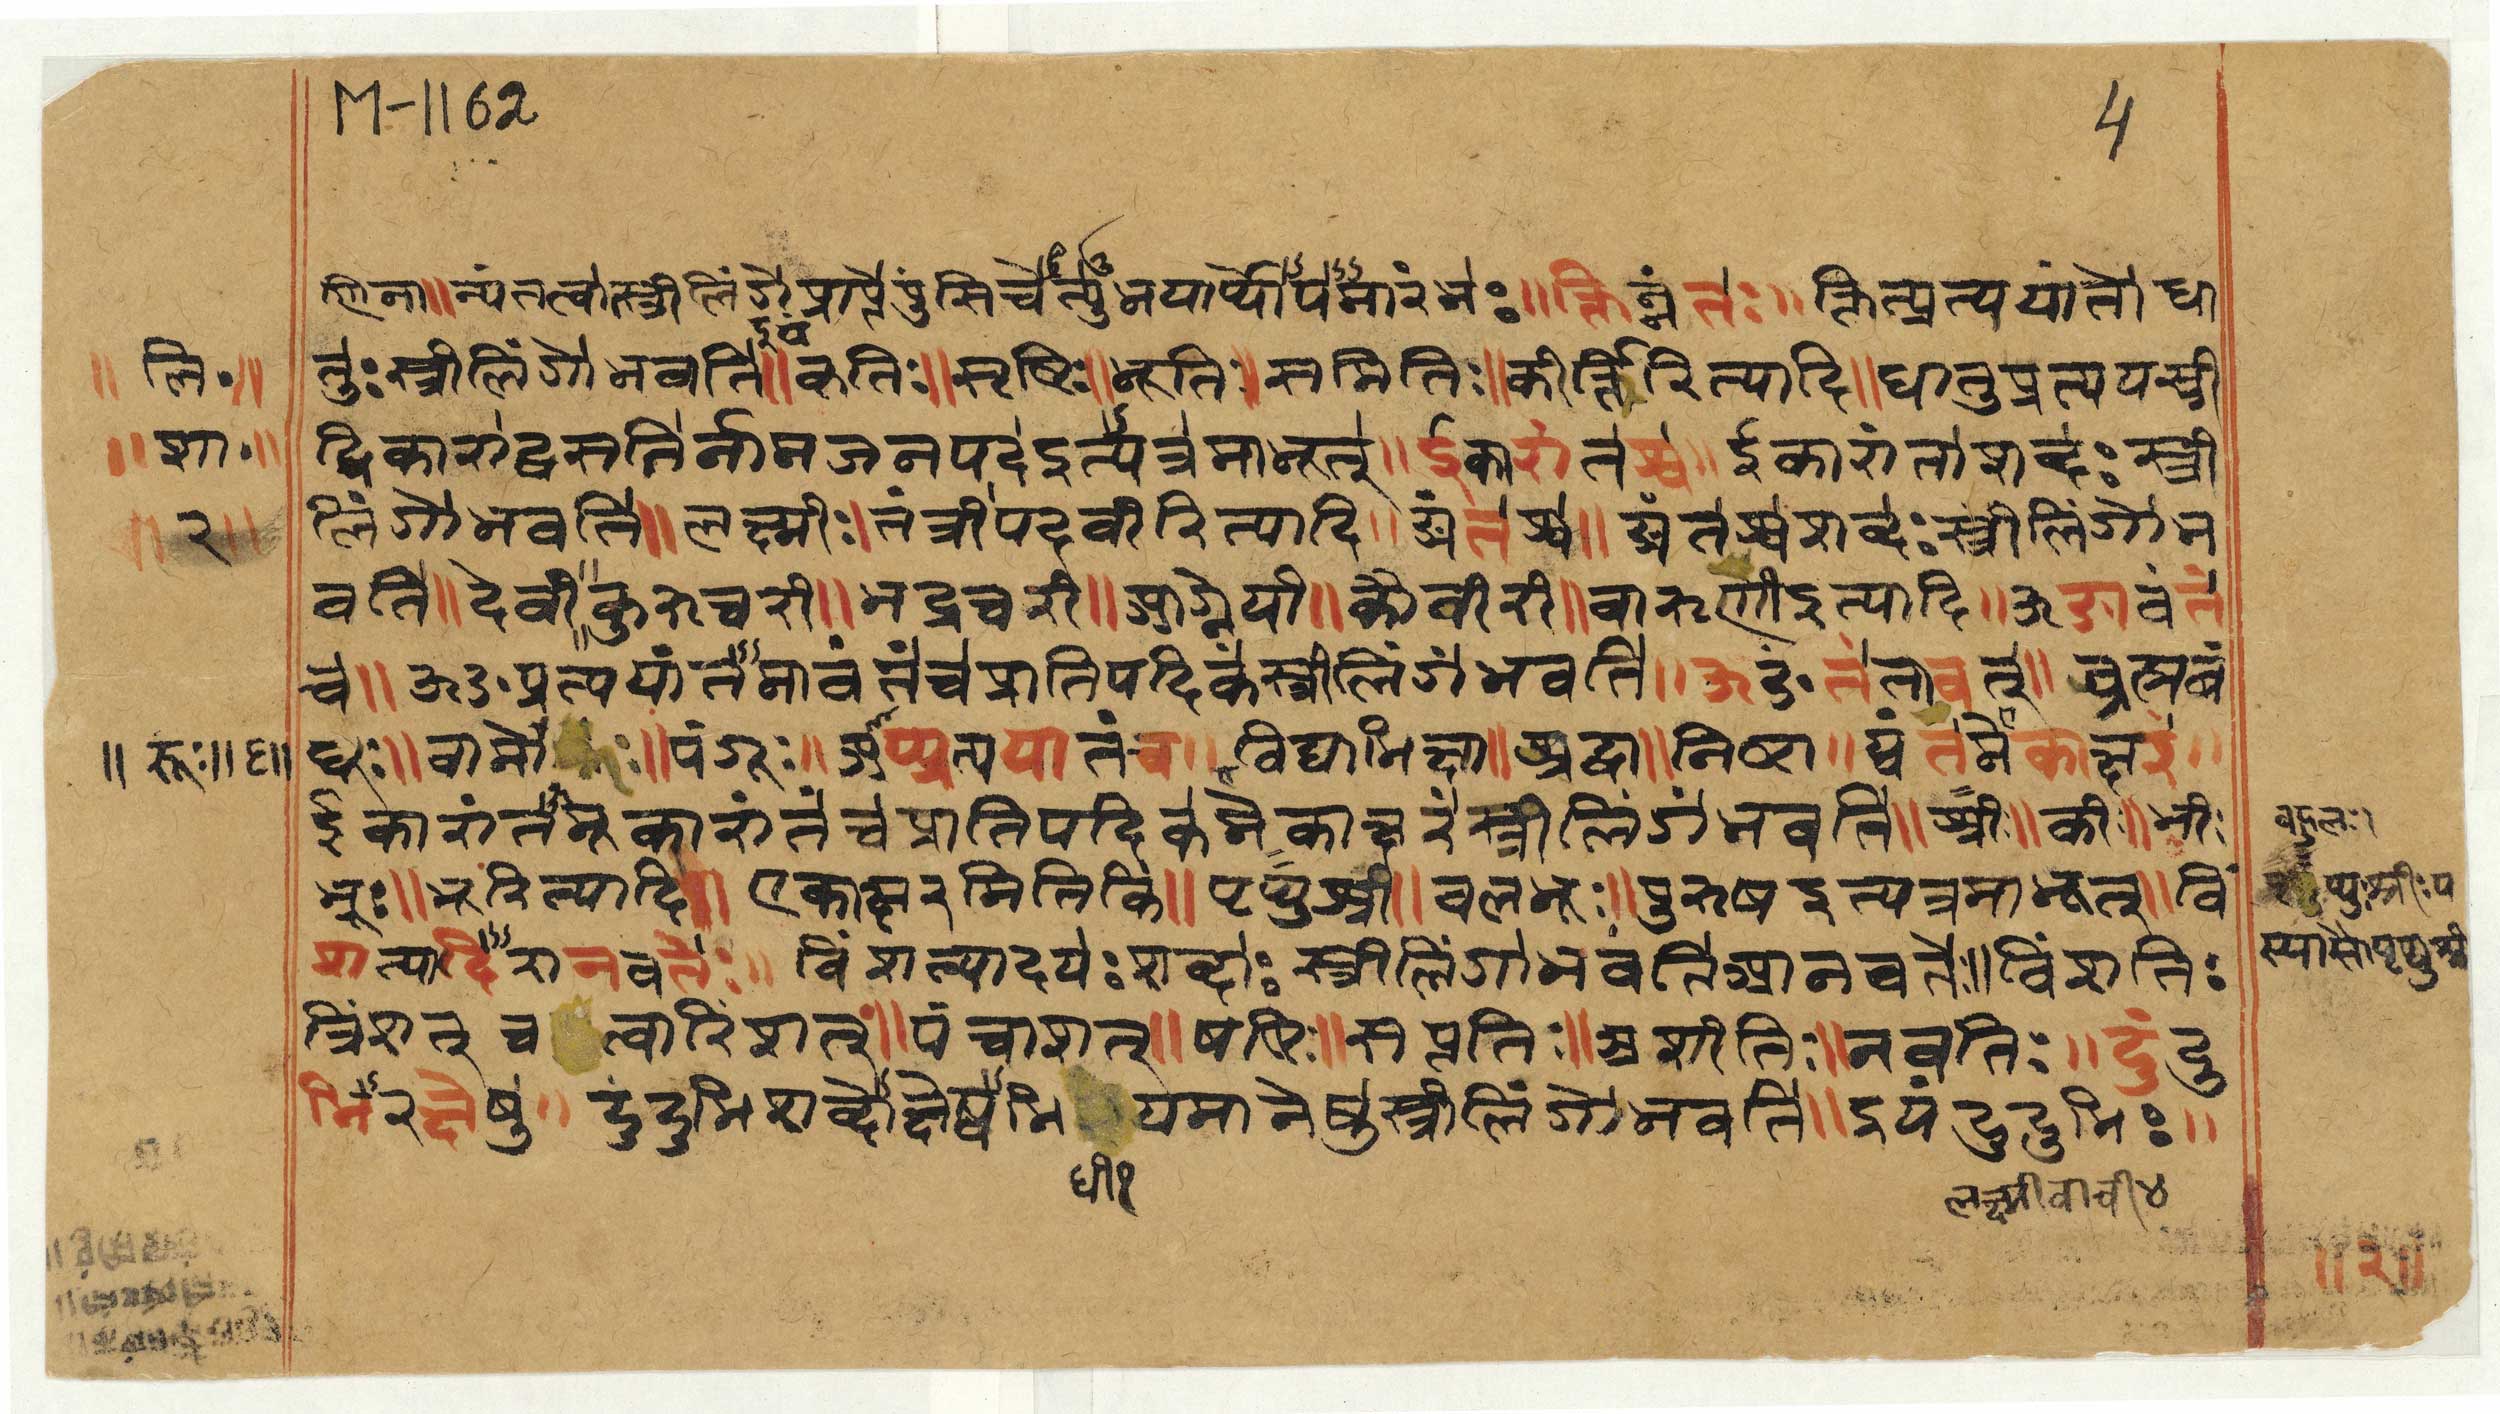 M-1162
4
णिना॥न्यंतत्वात्स्त्रीलिंगेप्राप्तेपुंसिचेत्युभयार्थोयमारंभः॥क्तिन्नंतः॥ क्तिन्प्रत्ययांतोधा
लिं॰ तुःस्त्रीलिंगोभवति॥कृतिः॥सृष्टिः॥भूतिः॥समितिः॥कीर्त्तिरित्यादि॥धातुप्रत्ययस्त्री
शा॰ धिकाराद्वसतिर्नामजनपदइत्यत्रमाभूत्॥ईकारांतश्च॥ईकारांतःशब्दःस्त्री
२ लिंगोभवति॥लक्ष्मीः।तंत्रीपदवीरित्यादि॥ङ्यंतश्च॥ङ्यंतश्चशब्दःस्त्रीलिंगोभ
वति॥देवी॥कुरुचरी॥मद्रचरी॥आग्नेयी॥कौवीरी॥वारुणीइत्यादि॥ऊङावंतं
च॥ऊङ्प्रत्ययांतमावंतंचप्रातिपदिकंस्त्रीलिंगंभवति॥ऊङंतंतावत्॥ब्रह्मबं
धूः॥वामो रूः॥पंगूः॥ ॥विद्याभिक्षा॥श्रद्धा॥निष्ठा॥य्वंतमेकाक्षरं॥
॥रूः॥६॥
ईकारांतमूकारांतंचप्रातिपदिकमेकाक्षरंस्त्रीलिंगंभवति॥श्रीः॥कीः॥भीः
भ्रूः॥भूरित्यादि॥एकाक्षरमितिकिं॥पृथुश्री॥वलभूः॥पुरुषइत्यत्रमाभूत्॥विं
शत्यादिरानवतेः॥विंशत्यादयःशब्दाःस्त्रीलिंगाभवंतिआनवतेः॥विंशतिः
त्रिंशत् च त्वारिंशत्॥पंचाशत्॥षष्टिः॥सप्ततिः॥अशीतिः॥नवतिः॥दुंदु
भिरक्षेषु॥दुंदुभिशब्दोक्षेष्वभि यमानेषुस्त्रीलिंगोभवति॥इयंदुंदुभिः॥
बहुलः।
पृथुःश्रीःय
स्यासौपृथुश्री
धी१
लक्ष्मीवाची४
॥२॥